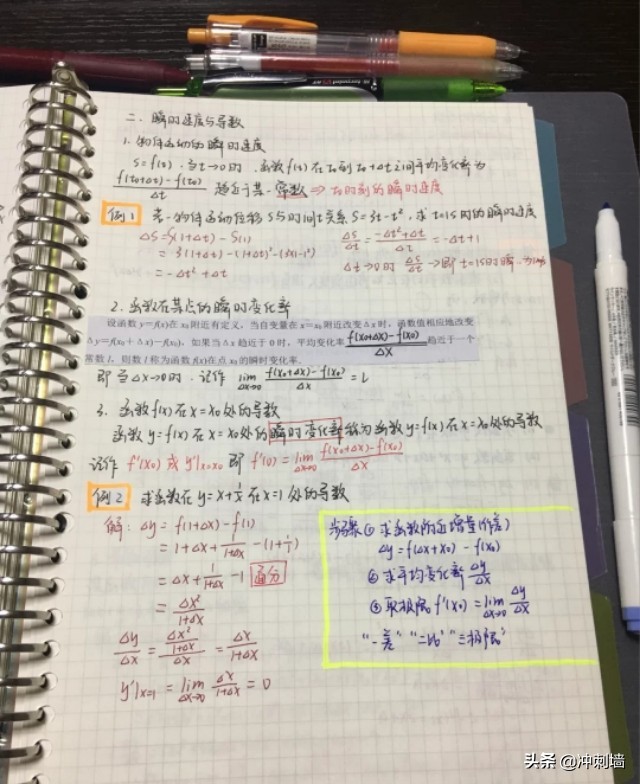 二、瞬时速度与导数
1. 物体运动的瞬时速度
S=f(t)，当t→0时，函数f(t)在t₀到t₀+Δt之间平均变化率为
f(t₀+Δt)-f(t₀)/Δt 趋近于某一常数 ⇒ t₀时刻的瞬时速度
例1 若一物体运动位移S与时间t关系S=3t-t²，求t=1S时的瞬时速度
ΔS=S(1+Δt)-S(1) ΔS/Δt=-Δt²+Δt/Δt=-Δt+1
=3(1+Δt)-(1+Δt)²-(3×1-1²) Δt→0时 ΔS/Δt→1即t=1S时的瞬时
=-Δt²+Δt
2. 函数在某点的瞬时变化率
设函数 y=f(x)在 x₀附近有定义，当自变量在 x=x₀附近改变Δx时，函数值相应地改变
Δy=f(x₀+Δx)-f(x₀)，如果当Δx趋近于0时，平均变化率 f(x₀+Δx)-f(x₀)/Δx 趋近于一个
常数 l，则数 l 称为函数 f(x)在点 x₀的瞬时变化率.
即当Δx→0时，记作 lim Δx→0 f(x₀+Δx)-f(x₀)/Δx = L
3. 函数f(x)在x=x₀处的导数
函数y=f(x)在x=x₀处的瞬时变化率称为函数y=f(x)在x=x₀处的导数
记作 f'(x₀)或y'|x=x₀ 即 f'(0)=lim Δx→0 f(x₀+Δx)-f(x₀)/Δx
例2 求函数在y=x+1/x在x=1处的导数
解：Δy=f(1+Δx)-f(1)
=1+Δx+1/1+Δx-(1+1/1)
=Δx+1/1+Δx-1 通分
=Δx²/1+Δx
Δy/Δx=Δx²/1+Δx/Δx=Δx/1+Δx
y'|x=1=lim Δx→0 Δx/1+Δx=0
步骤①求函数的增量(作差)
Δy=f(Δx+x₀)-f(x₀)
②求平均变化率Δy/Δx
③取极限f'(x₀)=lim Δx→0 Δy/Δx
“一差”“二比”“三极限”
头条 @冲刺墙